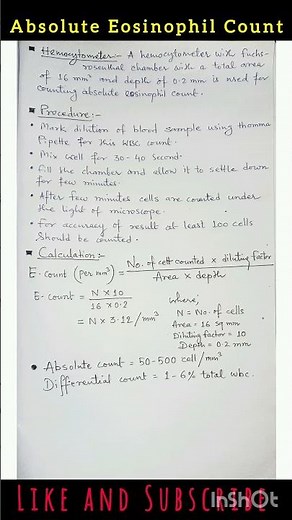 Absolute Eosinophil Count
Hemocytometer:- A hemocytometer with fuchs-
rosenthal chamber with a total area
of 16 mm² and depth of 0.2 mm is used for
counting absolute eosinophil count.
Procedure:-
• Mark dilution of blood sample using thomma
Pipette for this WBC count.
• Mix well for 30-40 second.
• fill the chamber and allow it to settle down
for few minutes.
• After few minutes cells are counted under
the light of microscope.
• For accuracy of result at least 100 cells
should be counted.
Calculation:-
E. count (per mm³) = No. of cell counted x diluting factor
Area x depth
E- count = N x 10
16 x 0.2
= N x 3.12 / mm³
where;
N = No. of cells
Area = 16 sq mm
Diluting factor = 10
Depth = 0.2 mm
• Absolute count = 50-500 cell/mm³
Differential count = 1-6% total wbc.
Like and Subscribe
InShOt